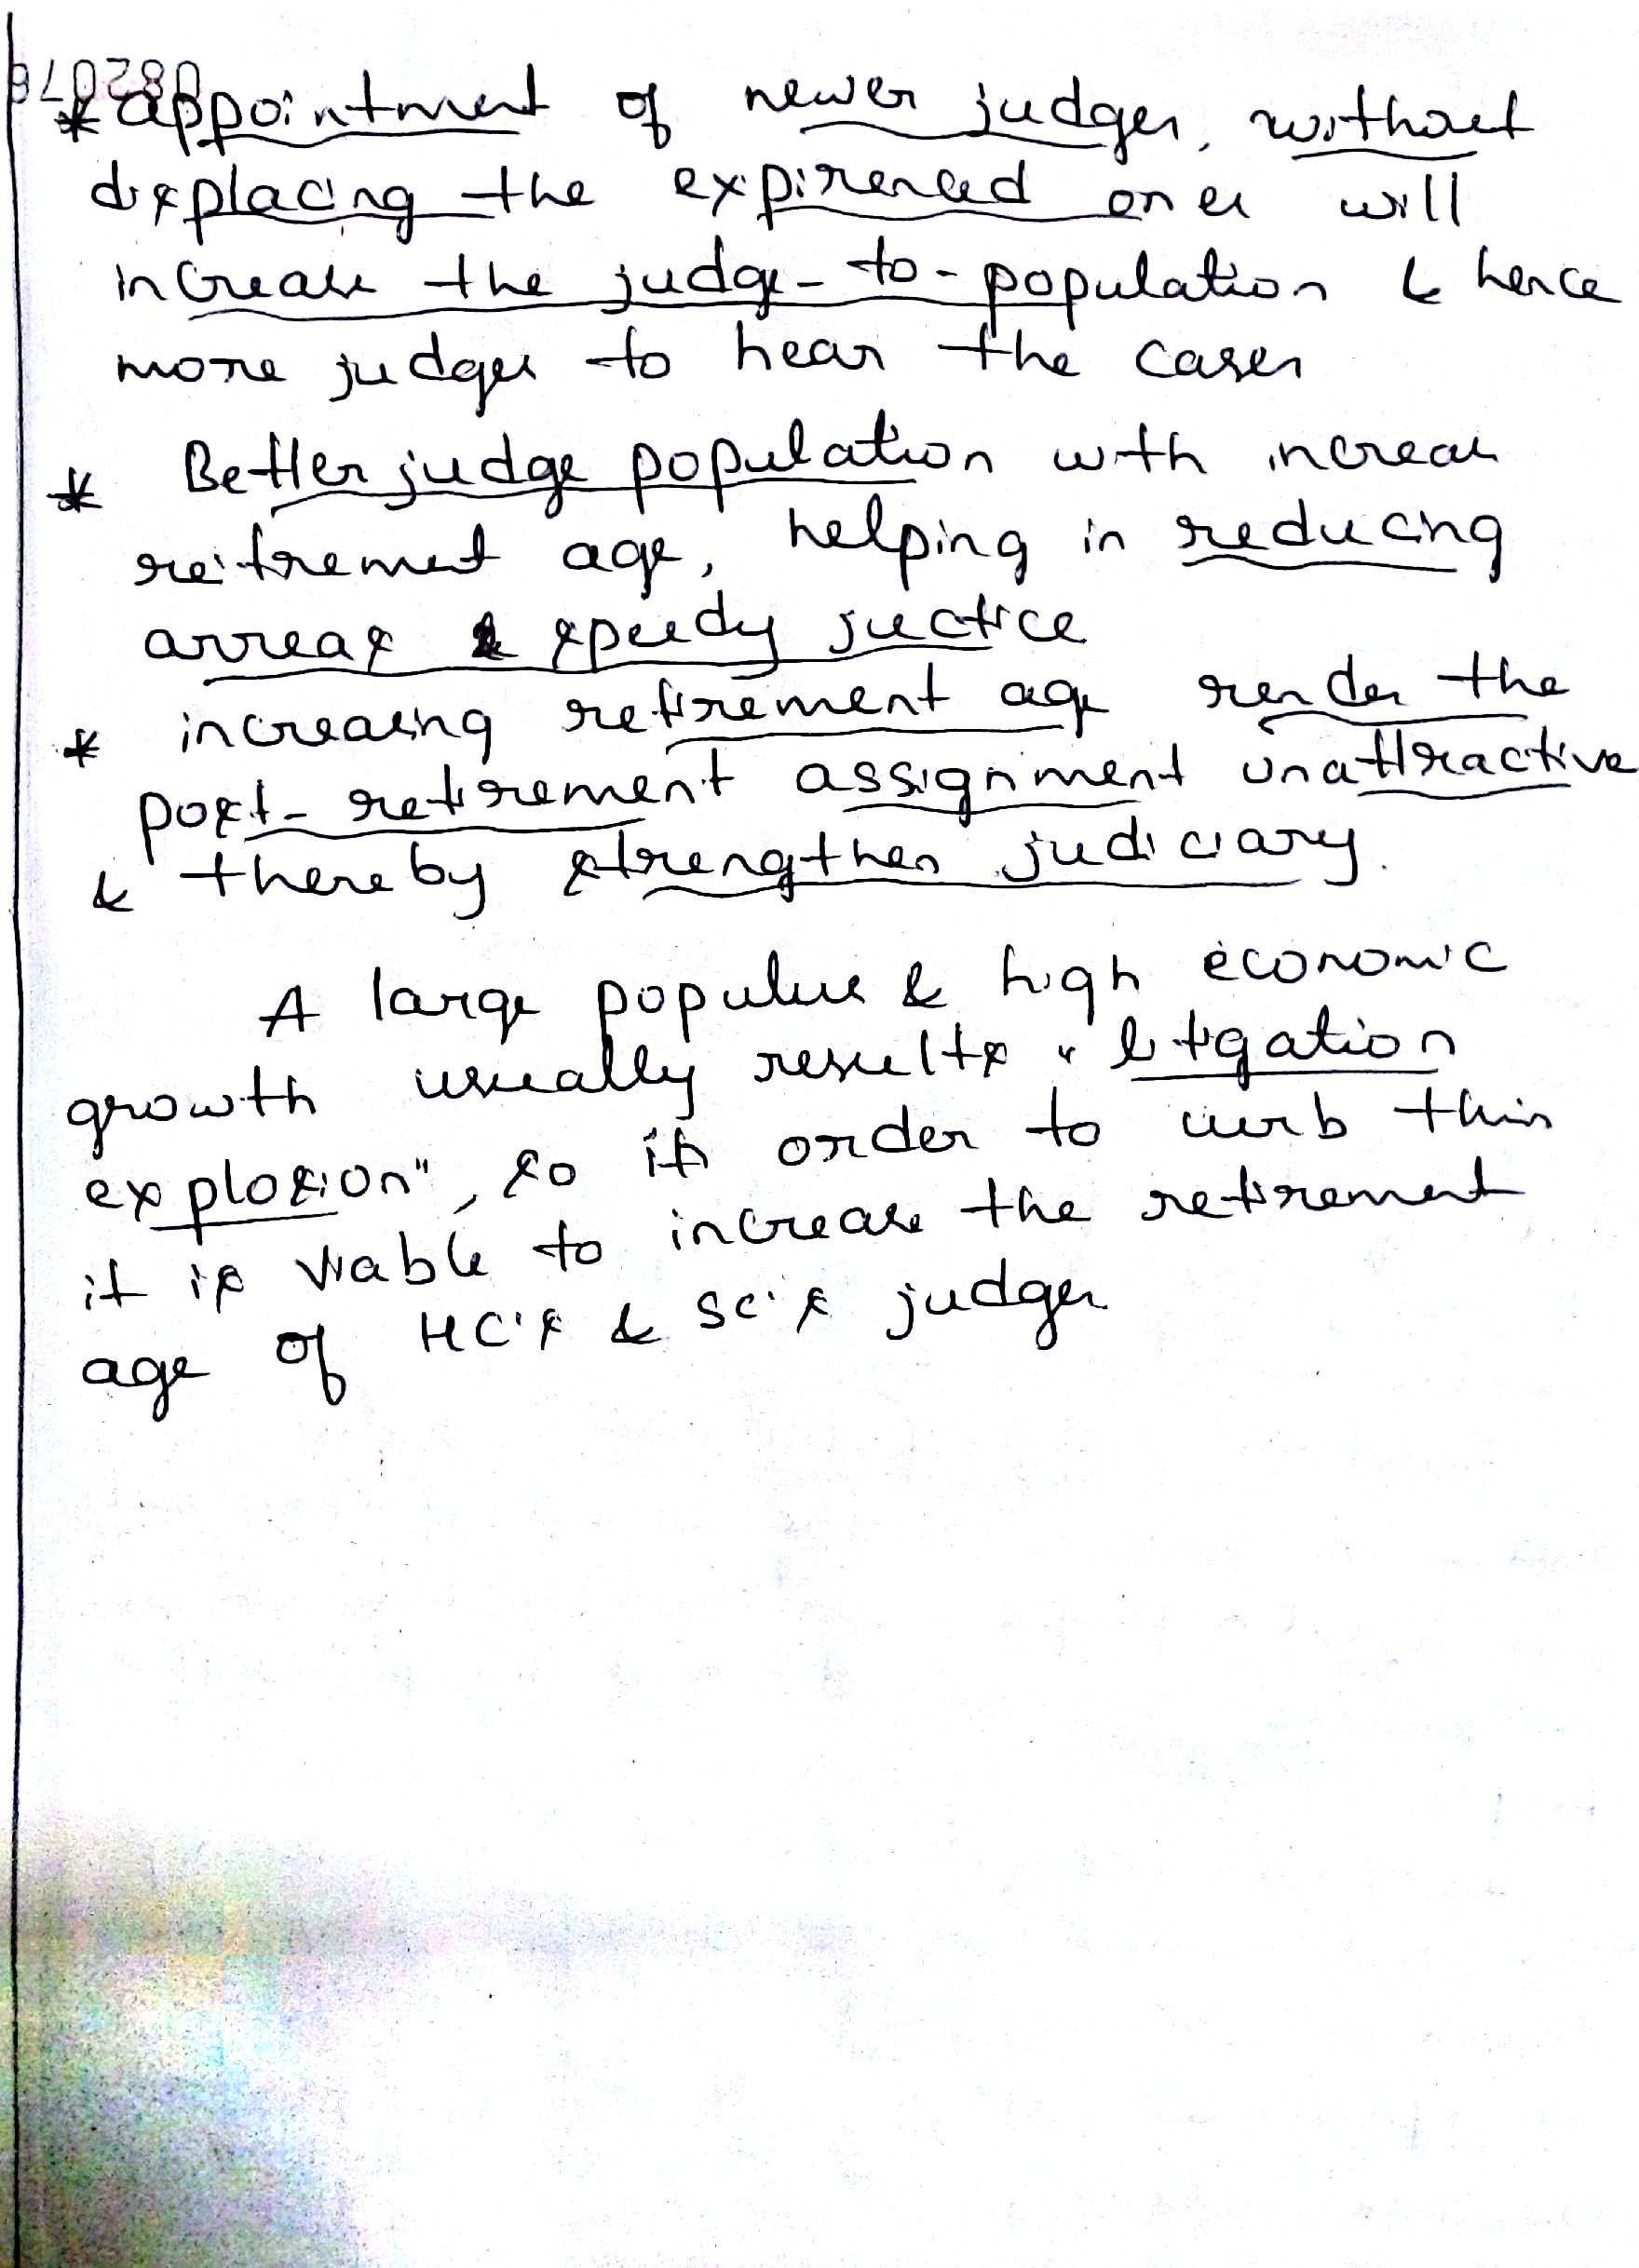 082078
* appointment of newer judges, without
displacing the expirenced ones will
increase the judge-to-population & hence
more judges to hear the cases
* Better judge population with increase
reitrement age, helping in reducing
arreas & speedy justice
* increasing retirement age render the
post-retirement assignment unattractive
& thereby strengthen judiciary.
A large populus & high economic
growth usually results "litigation
explosion", so in order to curb this
it is viable to increase the retirement
age of HC's & SC's judges